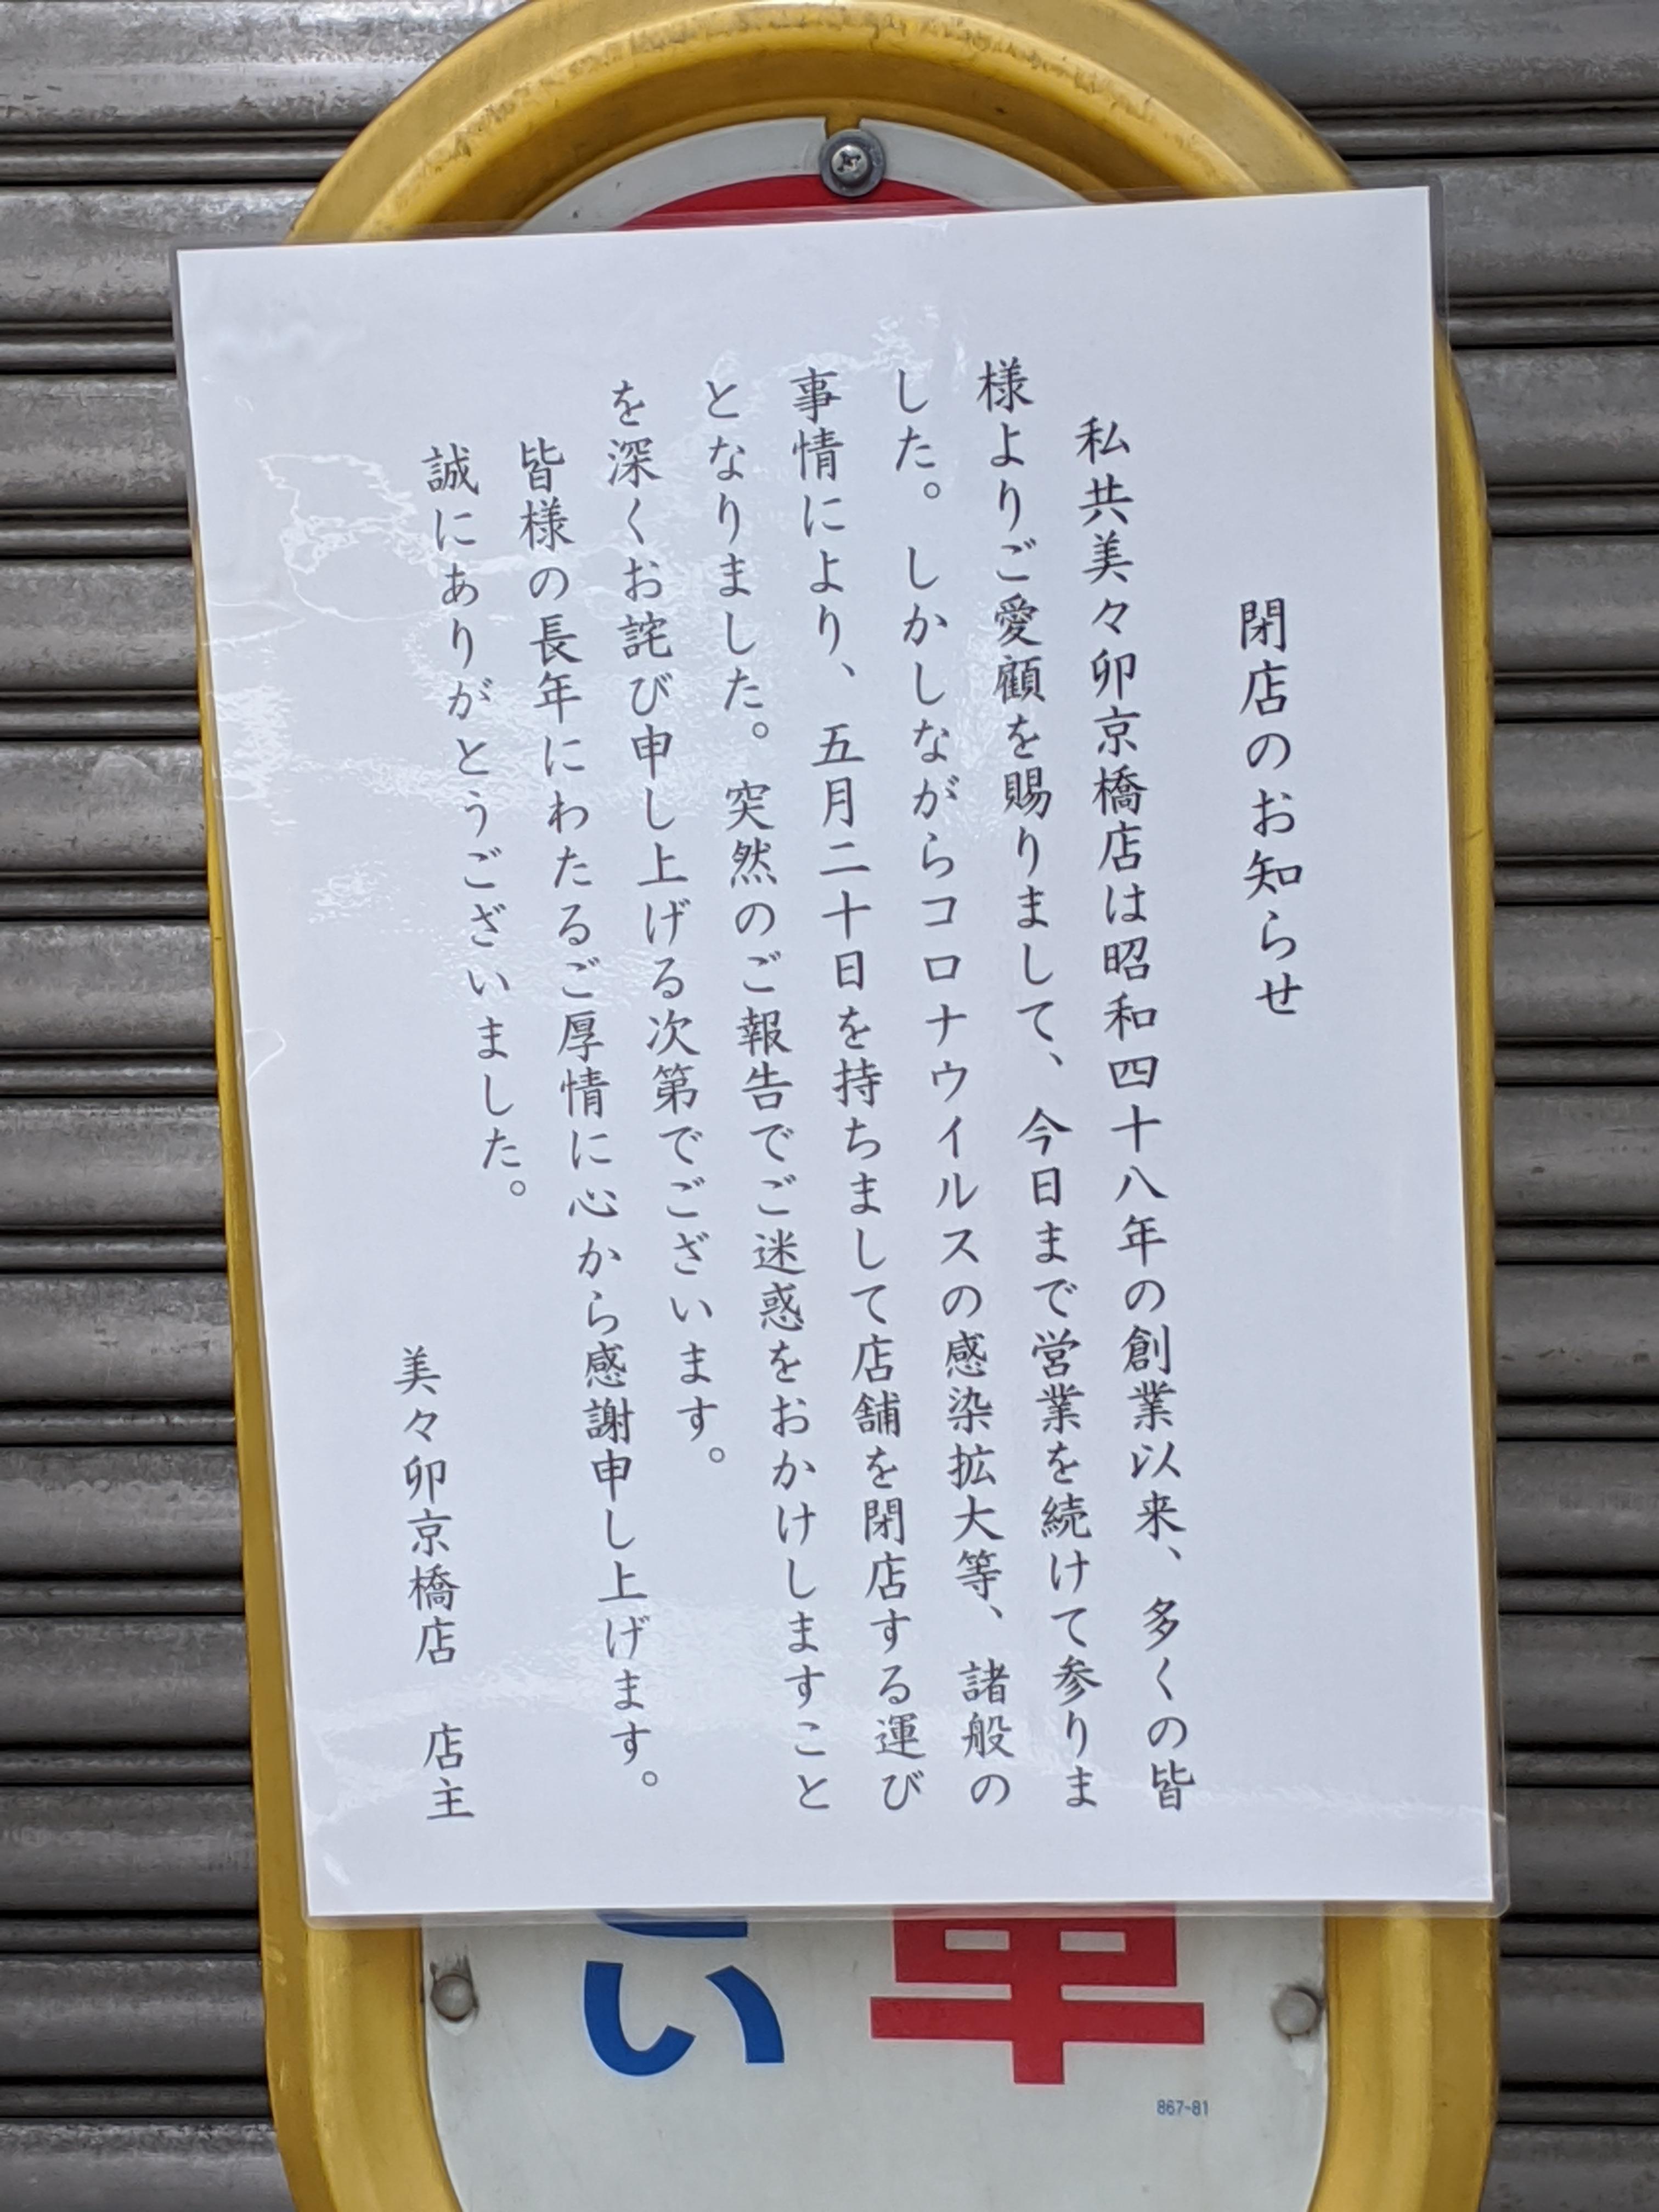 閉店のお知らせ
私共美々卯京橋店は昭和四十八年の創業以来、多くの皆
様よりご愛顧を賜りまして、今日まで営業を続けて参りま
した。しかしながらコロナウイルスの感染拡大等、諸般の
事情により、五月二十日を持ちまして店舗を閉店する運び
となりました。突然のご報告でご迷惑をおかけしますこと
を深くお詫び申し上げる次第でございます。
皆様の長年にわたるご厚情に心から感謝申し上げます。
誠にありがとうございました。
美々卯京橋店　店主
車
い
867-81